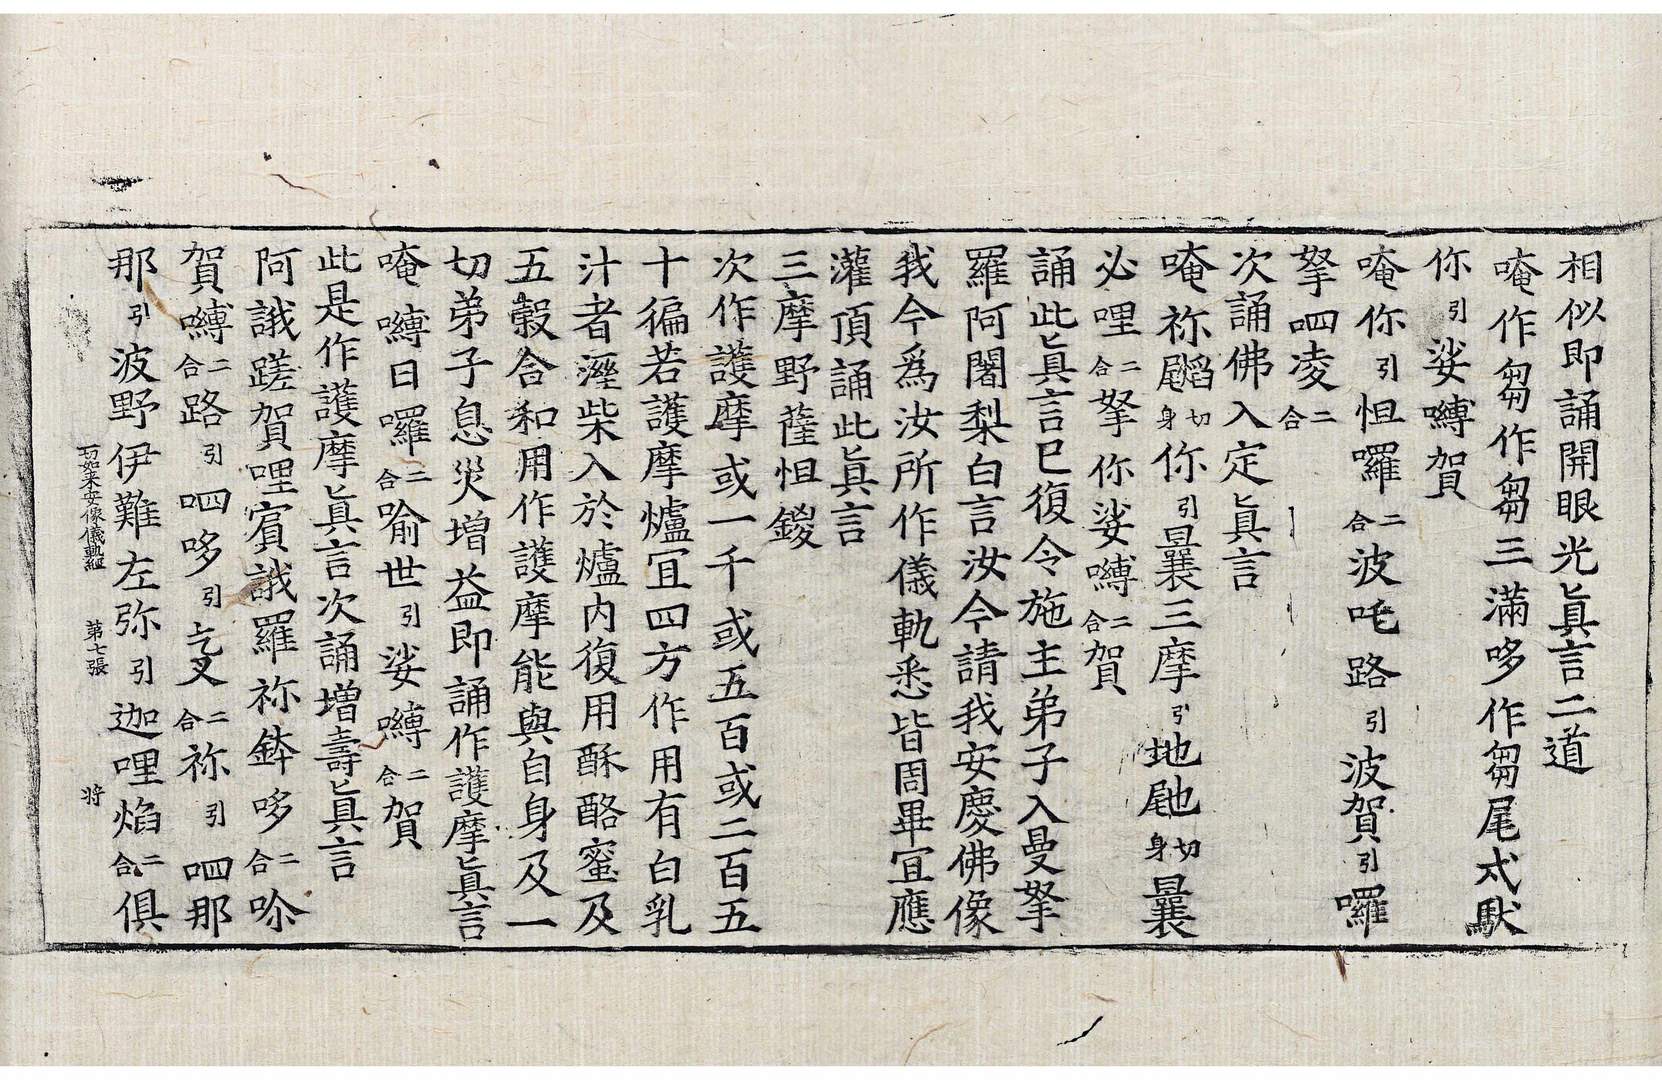 相似即誦開眼光眞言二道
唵作芻作芻三滿哆作芻尾戍馱
你引娑嚩賀
唵你引怛囉二合波吒路引波賀引囉
拏呬凌二合
次誦佛入定眞言
唵祢蹈尾切身你引曩三摩引地尾也切身曩
必哩二合拏你娑嚩二合賀
誦此眞言已復令施主弟子入曼拏
羅阿闍梨白言汝今請我安慶佛像
我今爲汝所作儀軌悉皆周畢宜應
灌頂誦此眞言
三摩野薩怛鑁
次作護摩或一千或五百或二百五
十徧若護摩爐宜四方作用有白乳
汁者溼柴入於爐內復用酥酪蜜及
五穀合和用作護摩能與自身及一
切弟子息災增益即誦作護摩眞言
唵嚩日囉二合喻世引娑嚩二合賀
此是作護摩眞言次誦增壽眞言
阿誐蹉賀哩賓誐羅祢鉢哆二合吤
賀嚩二合路引呬哆引訖叉二合祢引呬那
那引波野伊難左弥引迦哩焰二合俱
如來安像儀軌經　第七張　將